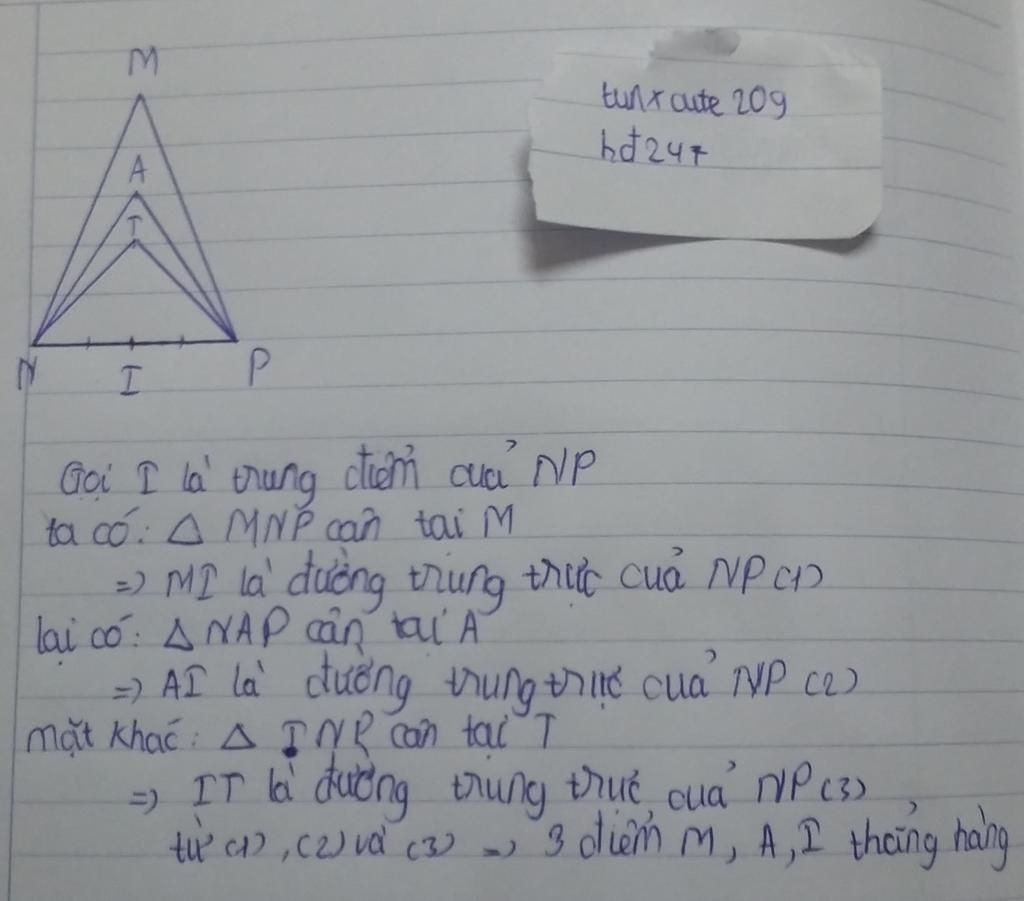 M
tunxcute209
A
hđ247
T
N
I
P
Gọi I là trung điểm của NP
ta có: △ MNP cân tại M
=> MI là đường trung trực của NP (1)
lại có: △ NAP cân tại A
=> AI là đường trung trực của NP (2)
mặt khác: △ INP cân tại T
=> IT là đường trung trực của NP (3)
từ (1), (2) và (3) => 3 điểm M, A, I thẳng hàng